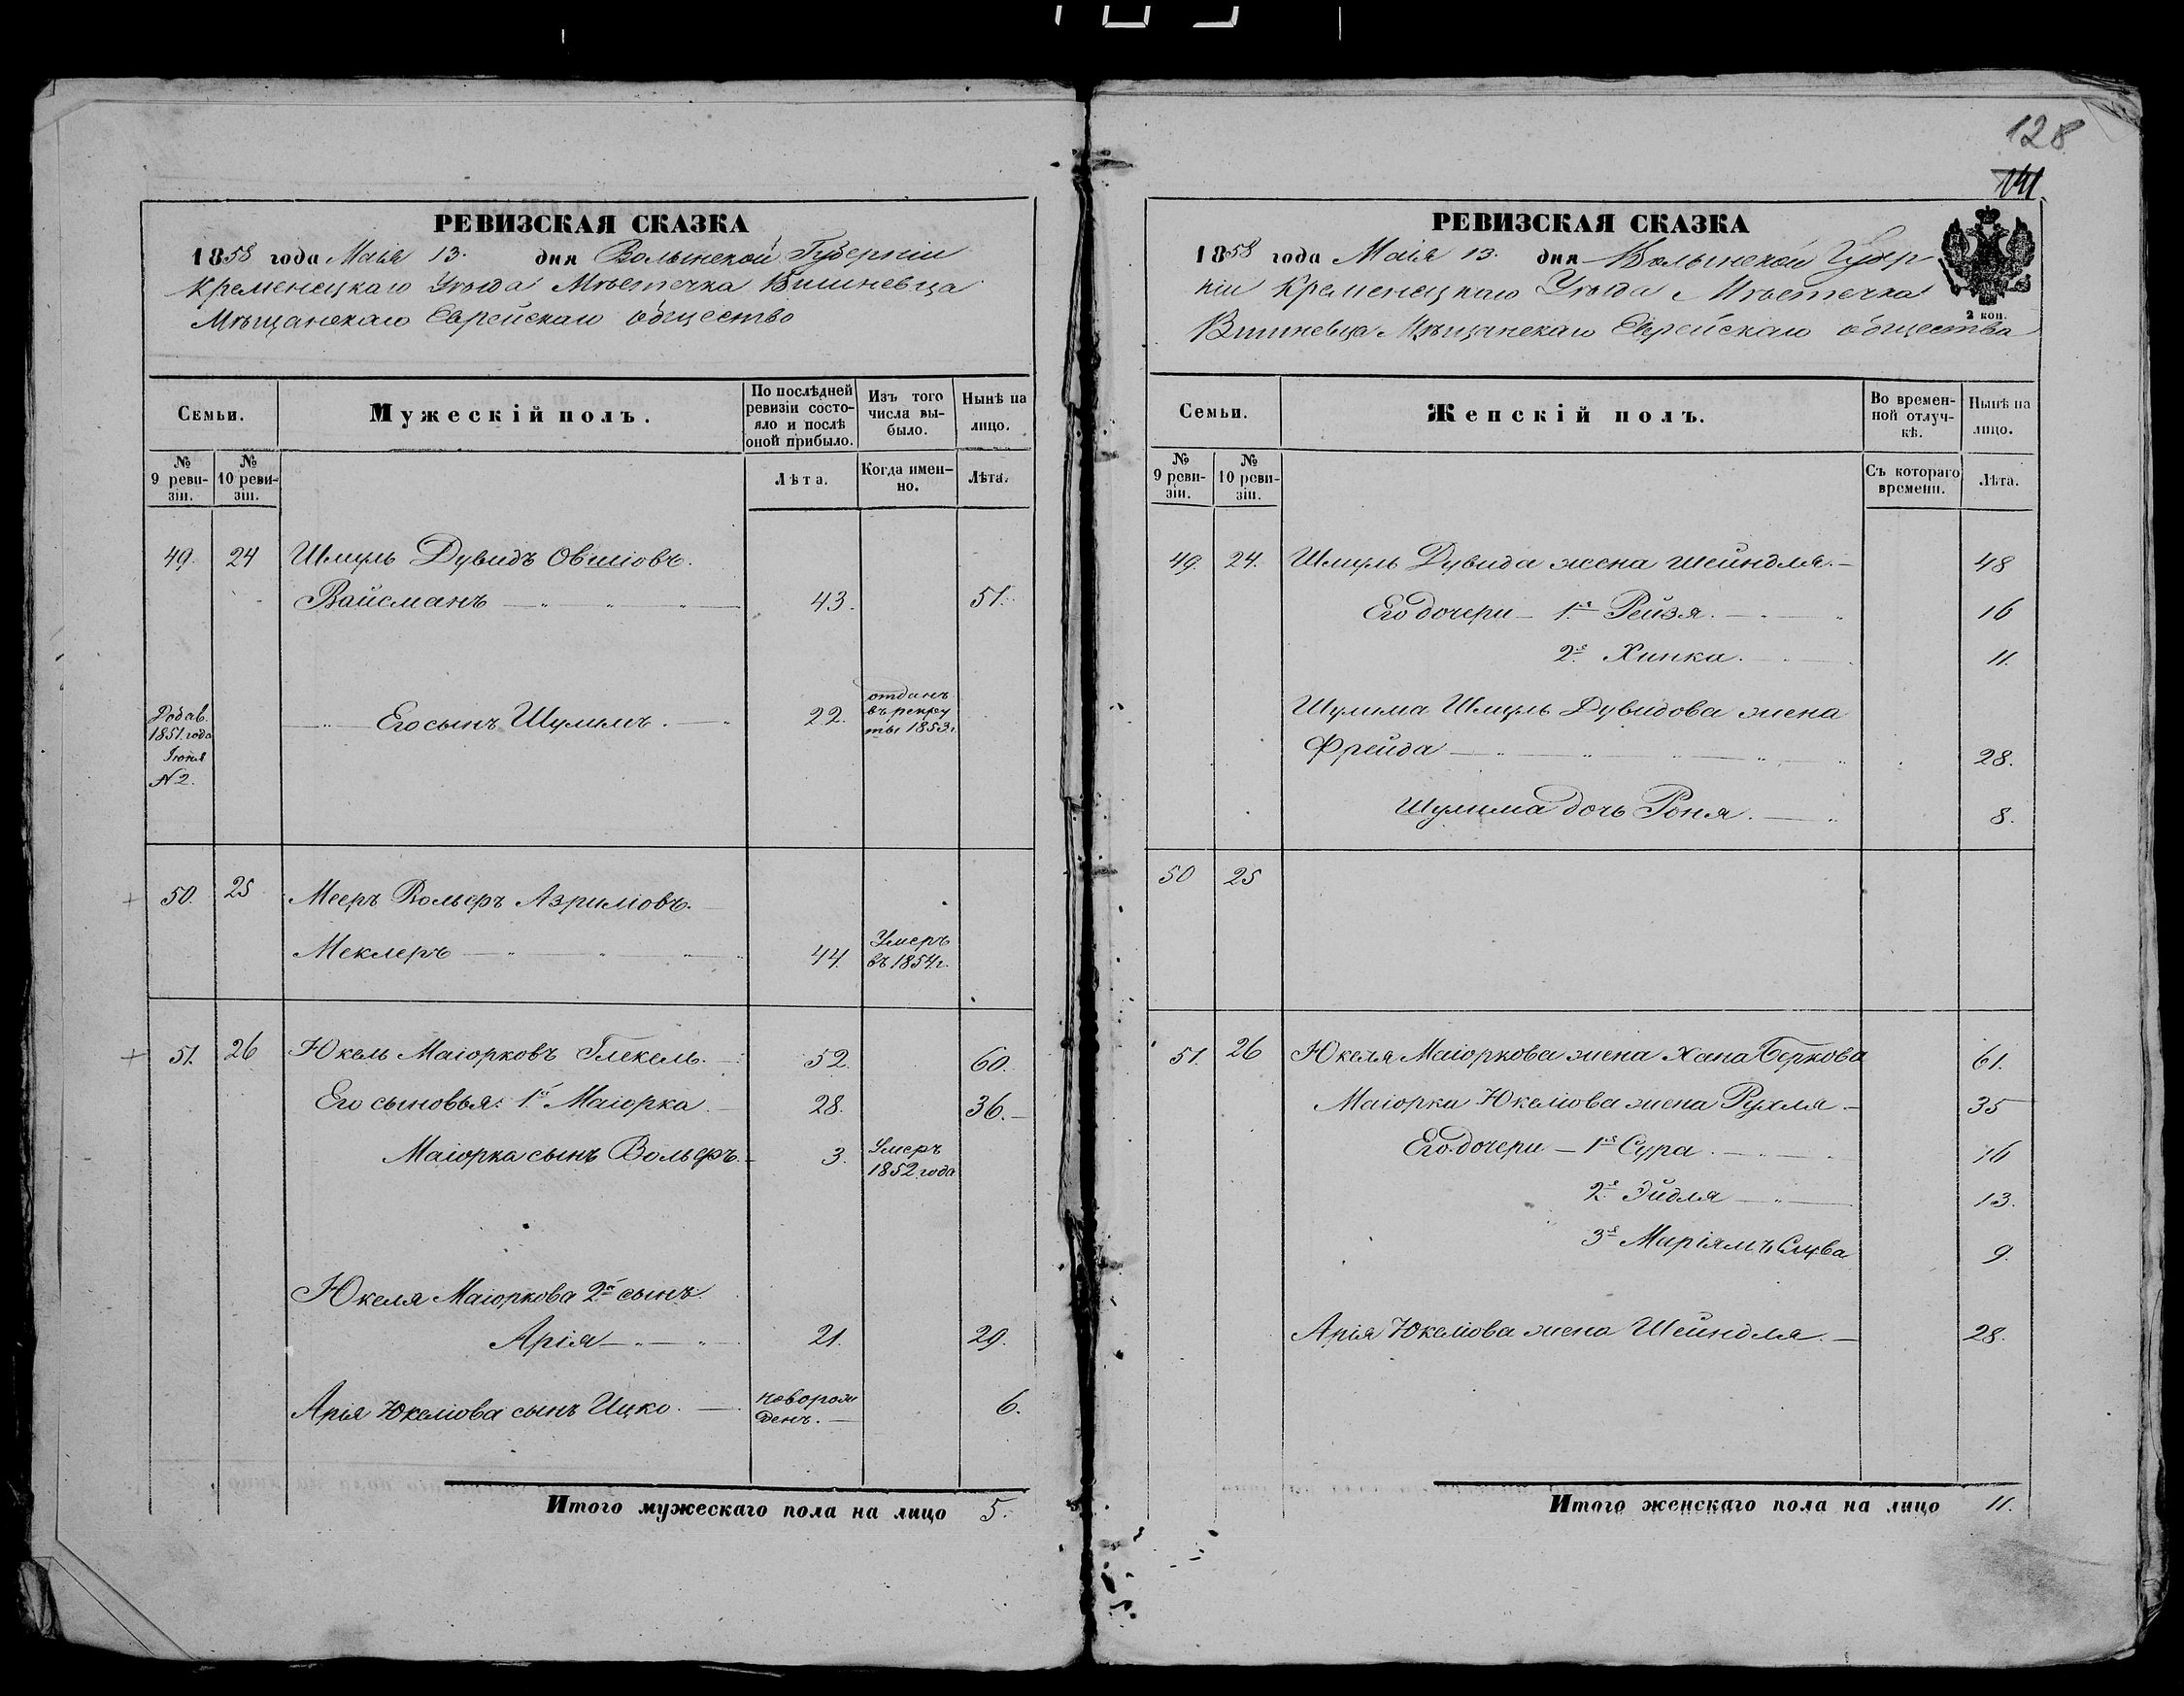 128
141
РЕВИЗСКАЯ СКАЗКА
1858 года Маія 13. дня Волынской Губерніи
Кременецкаго Уѣзда Мѣстечка Вишневца
Мѣщанскаго Еврейскаго общество
Семьи.
Мужескій полъ.
По послѣдней ревизіи состояло и послѣ оной прибыло.
Изъ того числа выбыло.
Нынѣ на лицо.
№ 9 ревизіи.
№ 10 ревизіи.
Лѣта.
Когда именно.
Лѣта.
49. 24 Шмуль Дувидъ Овшіовъ.
Вайсманъ 43. 51.
Добав. 1851 года Іюня N 2.
Его сынъ Шулимъ. 22. отданъ въ рекруты 1853 г.
50. 25 Мееръ Вольфъ Азриліовъ.
Меклеръ 44. Умеръ въ 1854 г.
51. 26 Юкель Маіорковъ Глекель. 52. 60.
Его сыновья: 1й Маіорка. 28. 36.
Маіорка сынъ Вольфъ. 3. Умеръ 1852 года
Юкеля Маіоркова 2й сынъ.
Арія 21. 29.
Арія Юкеліова сынъ Ицко. новорожденъ. 6.
Итого мужескаго пола на лицо 5.
РЕВИЗСКАЯ СКАЗКА
1858 года Маія 13. дня Волынской Губер
ніи Кременецкаго Уѣзда Мѣстечка
Вишневца Мѣщанскаго Еврейскаго общества
2 коп.
Семьи.
Женскій полъ.
Во временной отлучкѣ.
Нынѣ на лицо.
№ 9 ревизіи.
№ 10 ревизіи.
Съ котораго времени.
Лѣта.
49. 24. Шмуль Дувида жена Шейндля. 48
Его дочери 1я Рейзя. 16
2я Хинка. 11.
Шулима Шмуль Дувидова жена
Фрейда 28.
Шулима дочь Роня. 8.
50 25
51. 26 Юкеля Маіоркова жена Хана Беркова 61.
Маіорки Юкеліова жена Рухля 35
Его дочери 1я Сура. 16
2я Эйдля 13.
3я Маріямъ Слува 9.
Арія Юкеліова жена Шейндля. 28.
Итого женскаго пола на лицо 11.